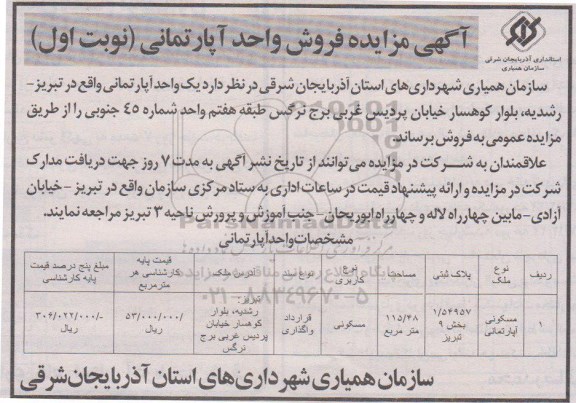 آگهی مزایده فروش واحد آپارتمانی (نوبت اول)
استانداری آذربایجان شرقی
سازمان همیاری
سازمان همیاری شهرداری‌های استان آذربایجان شرقی در نظر دارد یک واحد آپارتمانی واقع در تبریز-
رشدیه، بلوار کوهسار خیابان پردیس غربی برج نرگس طبقه هفتم واحد شماره ٤٥ جنوبی را از طریق
مزایده عمومی به فروش برساند.
علاقمندان به شرکت در مزایده می‌توانند از تاریخ نشر آگهی به مدت ۷ روز جهت دریافت مدارک
شرکت در مزایده و ارائه پیشنهاد قیمت در ساعات اداری به ستاد مرکزی سازمان واقع در تبریز - خیابان
آزادی- مابین چهارراه لاله و چهارراه ابوریحان- جنب آموزش و پرورش ناحیه ۳ تبریز مراجعه نمایند.
مشخصات واحد آپارتمانی
ردیف نوع ملک پلاک ثبتی مساحت نوع کاربری نوع سند آدرس ملک قیمت پایه کارشناسی هر مترمربع مبلغ پنج درصد قیمت پایه کارشناسی
۱ مسکونی آپارتمانی ۱/۵۴۹۵۷ بخش ۹ تبریز ۱۱۵/۴۸ متر مربع مسکونی قرارداد واگذاری تبریز- رشدیه، بلوار کوهسار خیابان پردیس غربی برج نرگس ۵۳/۰۰۰/۰۰۰/- ریال ۳۰۶/۰۲۲/۰۰۰/- ریال
سازمان همیاری شهرداری‌های استان آذربایجان شرقی
ParsNamadData
۰۲۱-۸۸۳۴۹۶۷۰-۵